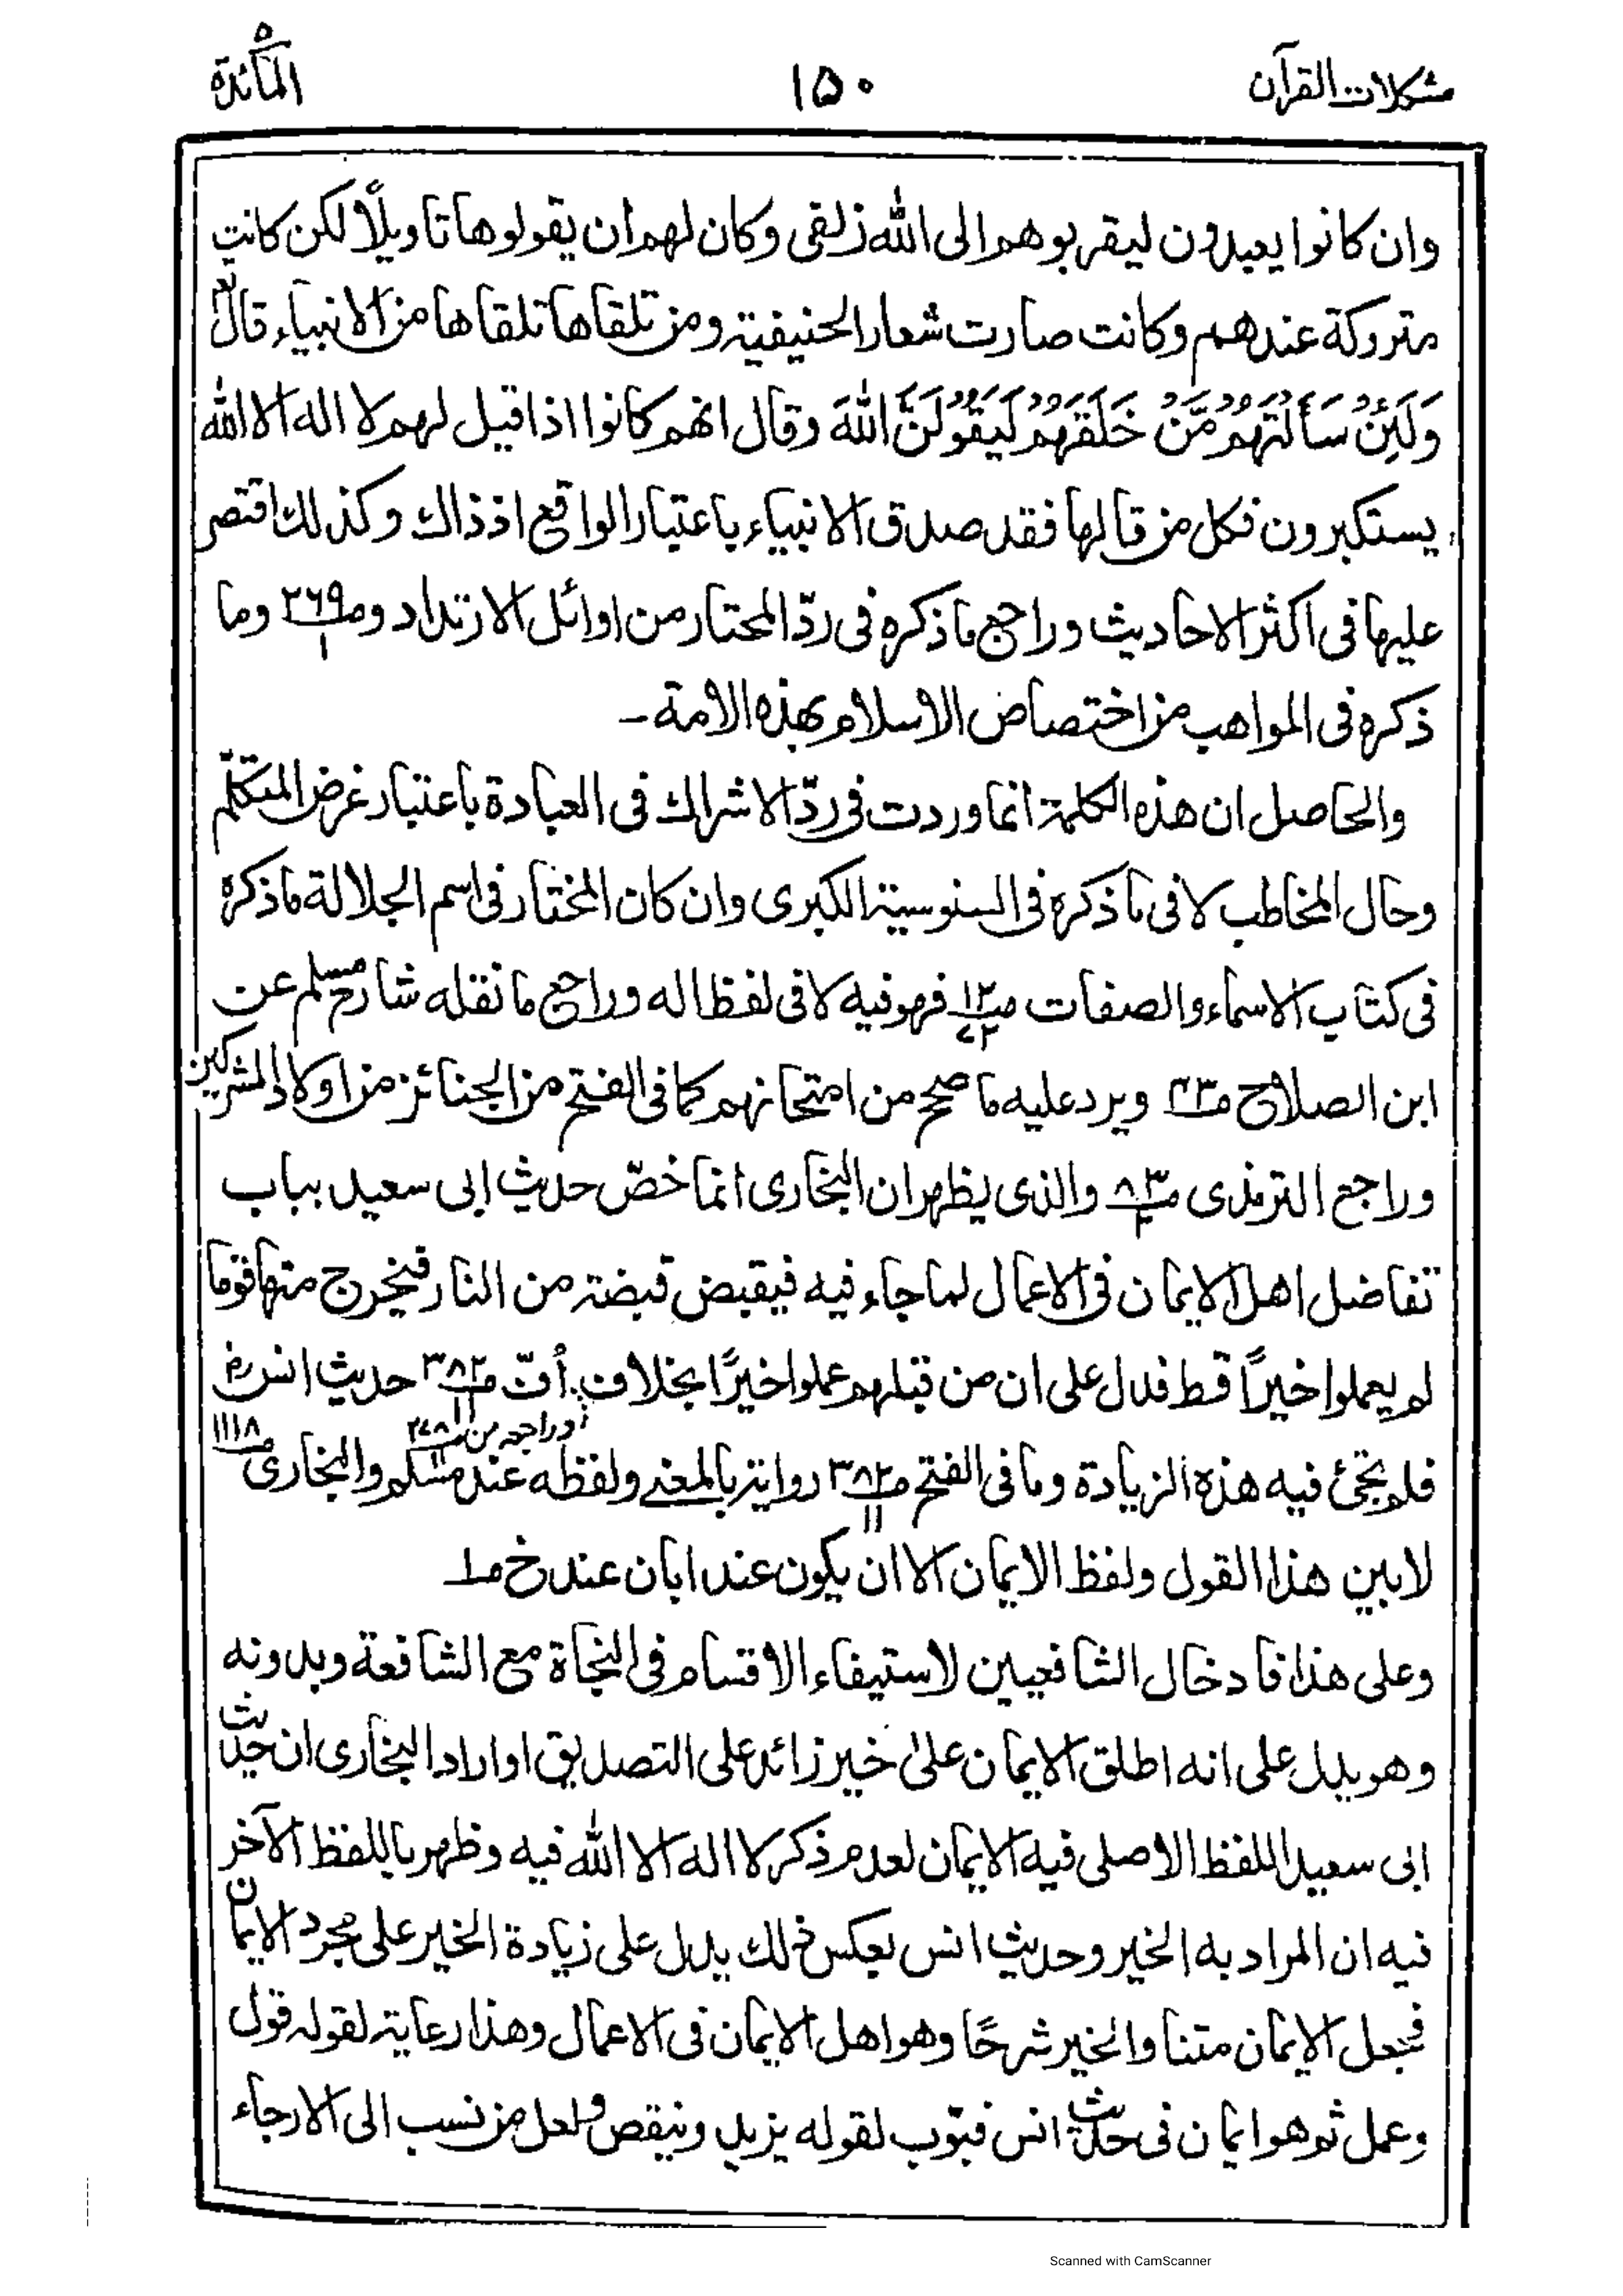 مشكلات القرآن ١٥٠ المآئدة ٥
وان كانوا يعبدون ليقربوهم الى الله زلفى وكان لهم ان يقولوها تاويلاً لكن كانت
متروكة عندهم وكانت صارت شعار الحنيفية ومن تلقاها تلقاها من الانبياء قال
وَلَئِنْ سَاَلْتَهُمْ مَّنْ خَلَقَهُمْ لَيَقُوْلُنَّ اللهَ وقال انهم كانوا اذا قيل لهم لا اله الا الله
يستكبرون فكل من قالها فقد صدق الانبياء باعتبار الواقع اذ ذاك وكذلك اقتصر
عليها فى اكثر الاحاديث وراجع ما ذكره فى ردّ المحتار من اوائل الارتداد وم٣٦٩/١ وما
ذكره فى المواهب من اختصاص الاسلام بهذه الامة ـ
والحاصل ان هذه الكلمة انما وردت فى ردّ الاشراك فى العبادة باعتبار غرض المتكلّم
وحال المخاطب لا فى ما ذكره فى السنوسية الكبرى وان كان المختار فى اسم الجلالة ما ذكره
فى كتاب الاسماء والصفات فهو فيه لا فى لفظ اله وراجع ما نقله شارح مسلم عن
ابن الصلاح م٤٣ ويرد عليه ما صح من امتحانهم كما فى الفتح من الجنائز من اولاد المشركين
وراجع الترمذى م٨٣/٢ والذى يظهر ان البخارى انما خصّ حديث ابى سعيد بباب
تفاضل اهل الايمان فى الاعمال لما جاء فيه فيقبض قبضة من النار فيخرج منها قوما
لم يعملوا خيرًا قط فدل على ان من قبلهم عملوا خيرًا بخلاف م٣٨٢/١١ حديث انس رض
وراجعه من م٣٤٨/١١
فلم يجئ فيه هذه الزيادة وما فى الفتح م٣٨٢/١١ رواية بالمعنى ولفظه عند مسلم والبخارى م١١١٨
لا يبين هذا القول ولفظ الايمان الا ان يكون عند ابان عند خ
وعلى هذا فادخال الشافعيين لاستيفاء الاقسام فى النجاة مع الشافعة وبدونه
وهو يدل على انه اطلق الايمان على خير زائد على التصديق او اراد البخارى ان حديث
ابى سعيد اللفظ الاصلى فيه الايمان لعدم ذكر لا اله الا الله فيه وظهر باللفظ الآخر
فيه ان المراد به الخير وحديث انس بعكس ذلك يدل على زيادة الخير على مجرد الايمان
فجعل الايمان متنا والخير شرحًا وهو اهل الايمان فى الاعمال وهذا رعاية لقوله قول
وعمل ثم هو ايمان فى حديث انس فبوّب لقوله يزيد وينقص ولعل من نسب الى الارجاء
Scanned with CamScanner